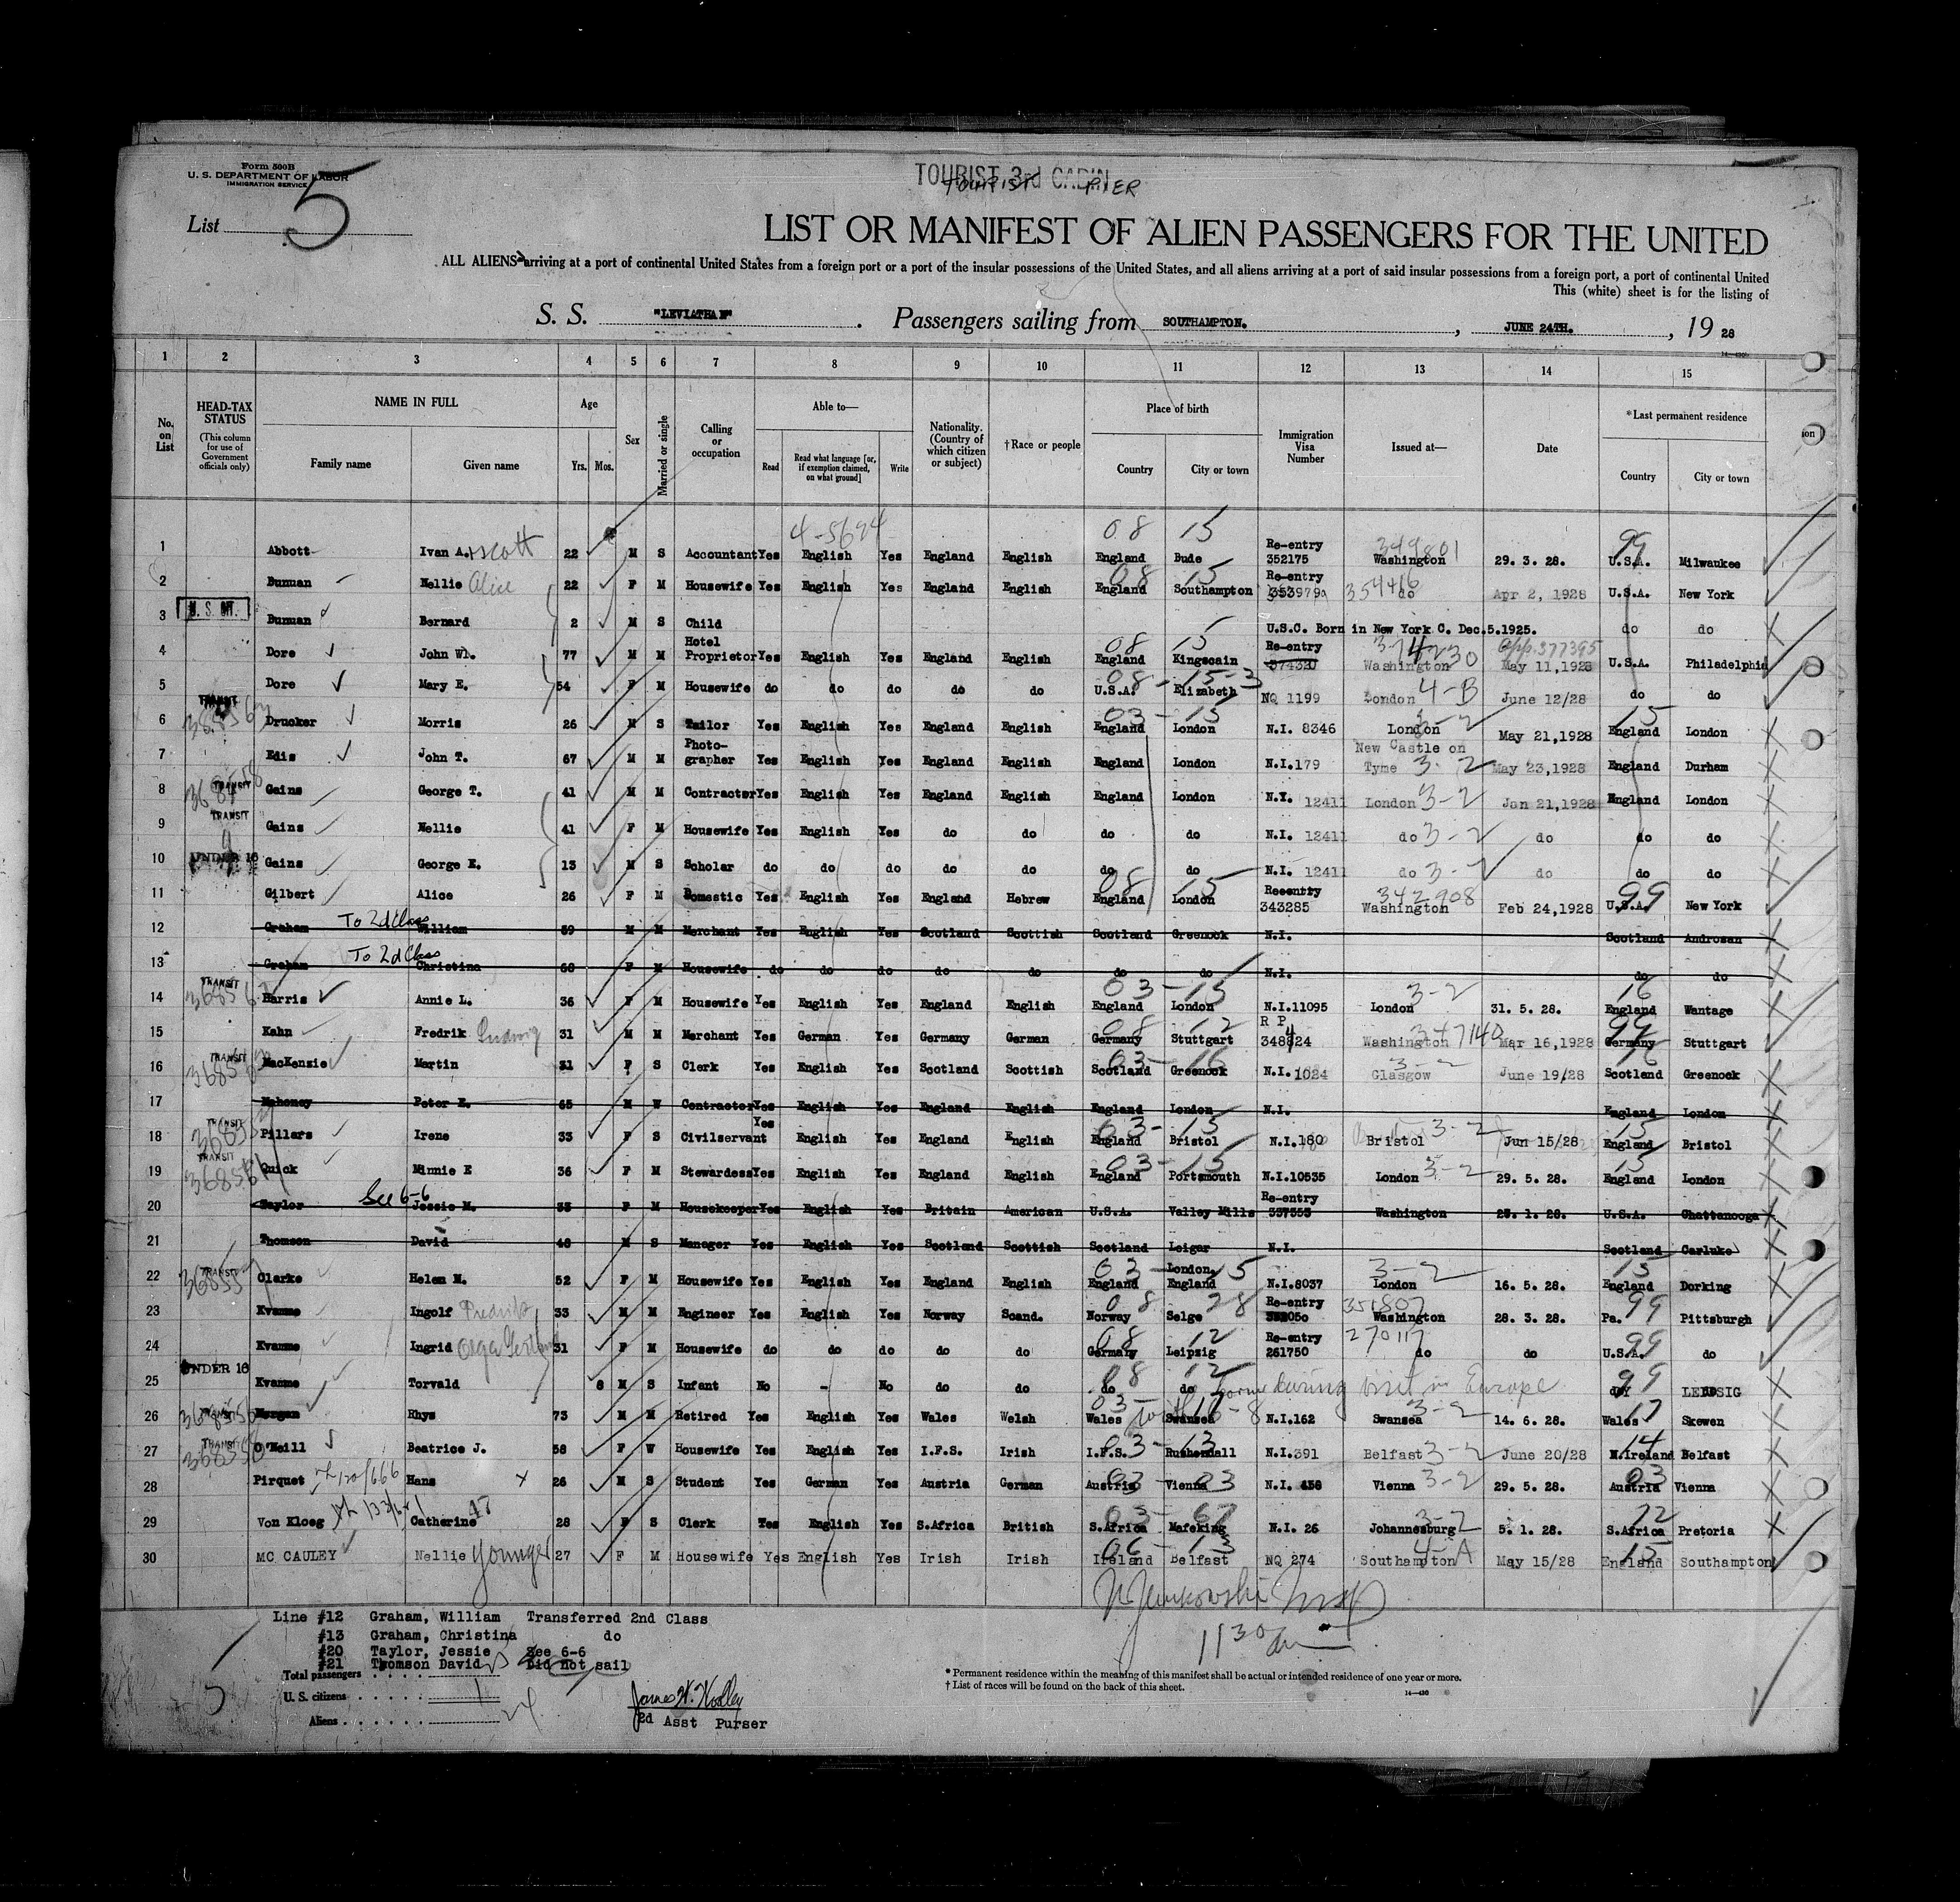 Form 500B
U. S. DEPARTMENT OF LABOR
IMMIGRATION SERVICE
TOURIST 3rd CABIN
TOURIST PIER
List 5
LIST OR MANIFEST OF ALIEN PASSENGERS FOR THE UNITED
ALL ALIENS arriving at a port of continental United States from a foreign port or a port of the insular possessions of the United States, and all aliens arriving at a port of said insular possessions from a foreign port, a port of continental United
This (white) sheet is for the listing of
S. S. "LEVIATHAN" . Passengers sailing from SOUTHAMPTON. , JUNE 24TH. , 19 28
1 2 3 4 5 6 7 8 9 10 11 12 13 14 15
No. on List HEAD-TAX STATUS (This column for use of Government officials only) NAME IN FULL Family name Given name Age Yrs. Mos. Sex Married or single Calling or occupation Able to— Read Read what language [or, if exemption claimed, on what ground] Write Nationality. (Country of which citizen or subject) †Race or people Place of birth Country City or town Immigration Visa Number Issued at— Date *Last permanent residence Country City or town
4-5694 08 15
1 Abbott Ivan A. Scott 22 M S Accountant Yes English Yes England English England Bude Re-entry 352175 349801 Washington 29. 3. 28. 99 U.S.A. Milwaukee
2 Bunman Nellie Alice 22 F M Housewife Yes English Yes England English 08 England 15 Southampton Re-entry 353979 354416 do Apr 2, 1928 U.S.A. New York
3 U. S. CIT. Bunman Bernard 2 M S Child U.S.C. Born in New York C. Dec.5.1925. do do
4 Dore John Wl. 77 M M Hotel Proprietor Yes English Yes England English 08 England 15 Kingscain Re-entry 37432D 374230 Washington App. 377395 May 11,1928 U.S.A. Philadelphia
5 Dore Mary E. 54 F M Housewife do do do do do 08 U.S.A. 15-3 Elizabeth NQ 1199 London 4-B June 12/28 do do
6 TRANSIT Drucker Morris 26 M S Tailor Yes English Yes England English 03 England 15 London N.I. 8346 London 3-2 May 21,1928 15 England London
7 Edis John T. 67 M M Photo-grapher Yes English Yes England English England London N.I.179 New Castle on Tyme 3-2 May 23,1928 England Durham
8 TRANSIT Gains George T. 41 M M Contractor Yes English Yes England English England London N.Y. 12411 London 3-2 Jan 21,1928 England London
9 TRANSIT Gains Nellie 41 F M Housewife Yes English Yes do do do do N.I. 12411 do 3-2 do do do
10 UNDER 16 Gains George E. 13 M S Scholar do do do do do do do N.I. 12411 do 3-2 do do do
11 Gilbert Alice 26 F M Domestic Yes English Yes England Hebrew 08 England 15 London Reentry 343285 342908 Washington Feb 24,1928 99 U.S.A. New York
12 Graham To 2d Class William 59 M M Merchant Yes English Yes Scotland Scottish Scotland Greenock N.I. Scotland Androsan
13 Graham To 2d Class Christina 60 F M Housewife do do do do do do do N.I. do do
14 TRANSIT Harris Annie L. 36 F M Housewife Yes English Yes England English 03 England 15 London N.I.11095 3-2 London 31. 5. 28. 16 England Wantage
15 Kahn Fredrik Ludwig 31 M M Merchant Yes German Yes Germany German 08 Germany 12 Stuttgart R P 348824 Washington 347140 Mar 16,1928 99 Germany Stuttgart
16 TRANSIT MacKenzie Martin 31 F S Clerk Yes English Yes Scotland Scottish 03 Scotland 16 Greenock N.I.1024 3-2 Glasgow June 19/28 16 Scotland Greenock
17 Mahoney Peter E. 65 M W Contractor Yes English Yes England English England London N.I. England London
18 TRANSIT Pillars Irene 33 F S Civilservant Yes English Yes England English 03 England 15 Bristol N.I.180 Bristol 3-2 Jun 15/28 15 England Bristol
19 TRANSIT Quick Minnie E 36 F M Stewardess Yes English Yes England English 03 England 15 Portsmouth N.I.10535 London 3-2 29. 5. 28. 15 England London
20 Taylor See 6-6 Jessie M. 55 F M Housekeeper Yes English Yes Britain American U.S.A. Valley Mills Re-entry 337353 Washington 25. 1. 28. U.S.A. Chattanooga
21 Thomson David 48 M S Manager Yes English Yes Scotland Scottish Scotland Leigar N.I. Scotland Carluke
22 TRANSIT Clarke Helen M. 52 F M Housewife Yes English Yes England English 03 England London, 15 England N.I.8037 3-2 London 16. 5. 28. 15 England Dorking
23 Kvamme Ingolf 33 M M Engineer Yes English Yes Norway Scand. 08 Norway 28 Selge Re-entry 351807 Washington 28. 3. 28. 99 Pa. Pittsburgh
24 Kvamme Ingrid Olga 31 F M Housewife do do do do do 08 Germany 12 Leipzig Re-entry 261750 270117 do do 99 U.S.A. do
25 UNDER 16 Kvamme Torvald 8 M S Infant No - No do do 08 do 12 do born during visit in Europe 99
26 TRANSIT Morgan Rhys 73 M M Retired Yes English Yes Wales Welsh 03 Wales 17 Swansea N.I.162 3-2 Swansea 14. 6. 28. 17 Wales Skewen
27 TRANSIT O'Neill Beatrice J. 58 F W Housewife Yes English Yes I.F.S. Irish 03 I.F.S. 13 Rushendall N.I.391 Belfast 3-2 June 20/28 14 N.Ireland Belfast
28 Pirquet Hans X 26 M S Student Yes German Yes Austria German 03 Austria 03 Vienna N.I. 458 Vienna 3-2 29. 5. 28. 03 Austria Vienna
29 Von Kloeg Catherine 28 F S Clerk Yes English Yes S.Africa British 03 S.Africa 67 Mafeking N.I. 26 Johannesburg 3-2 5. 1. 28. 72 S.Africa Pretoria
30 MC CAULEY Nellie Younger 27 F M Housewife Yes English Yes Irish Irish 06 Ireland 13 Belfast NQ 274 Southampton 4-A May 15/28 15 England Southampton
1130 am
Line #12 Graham, William Transferred 2nd Class
#13 Graham, Christina do
#20 Taylor, Jessie See 6-6
#21 Thomson David Did not sail
Total passengers
U. S. citizens 1
Aliens 24
James W. Woolley
2d Asst Purser
* Permanent residence within the meaning of this manifest shall be actual or intended residence of one year or more.
† List of races will be found on the back of this sheet.
14—430